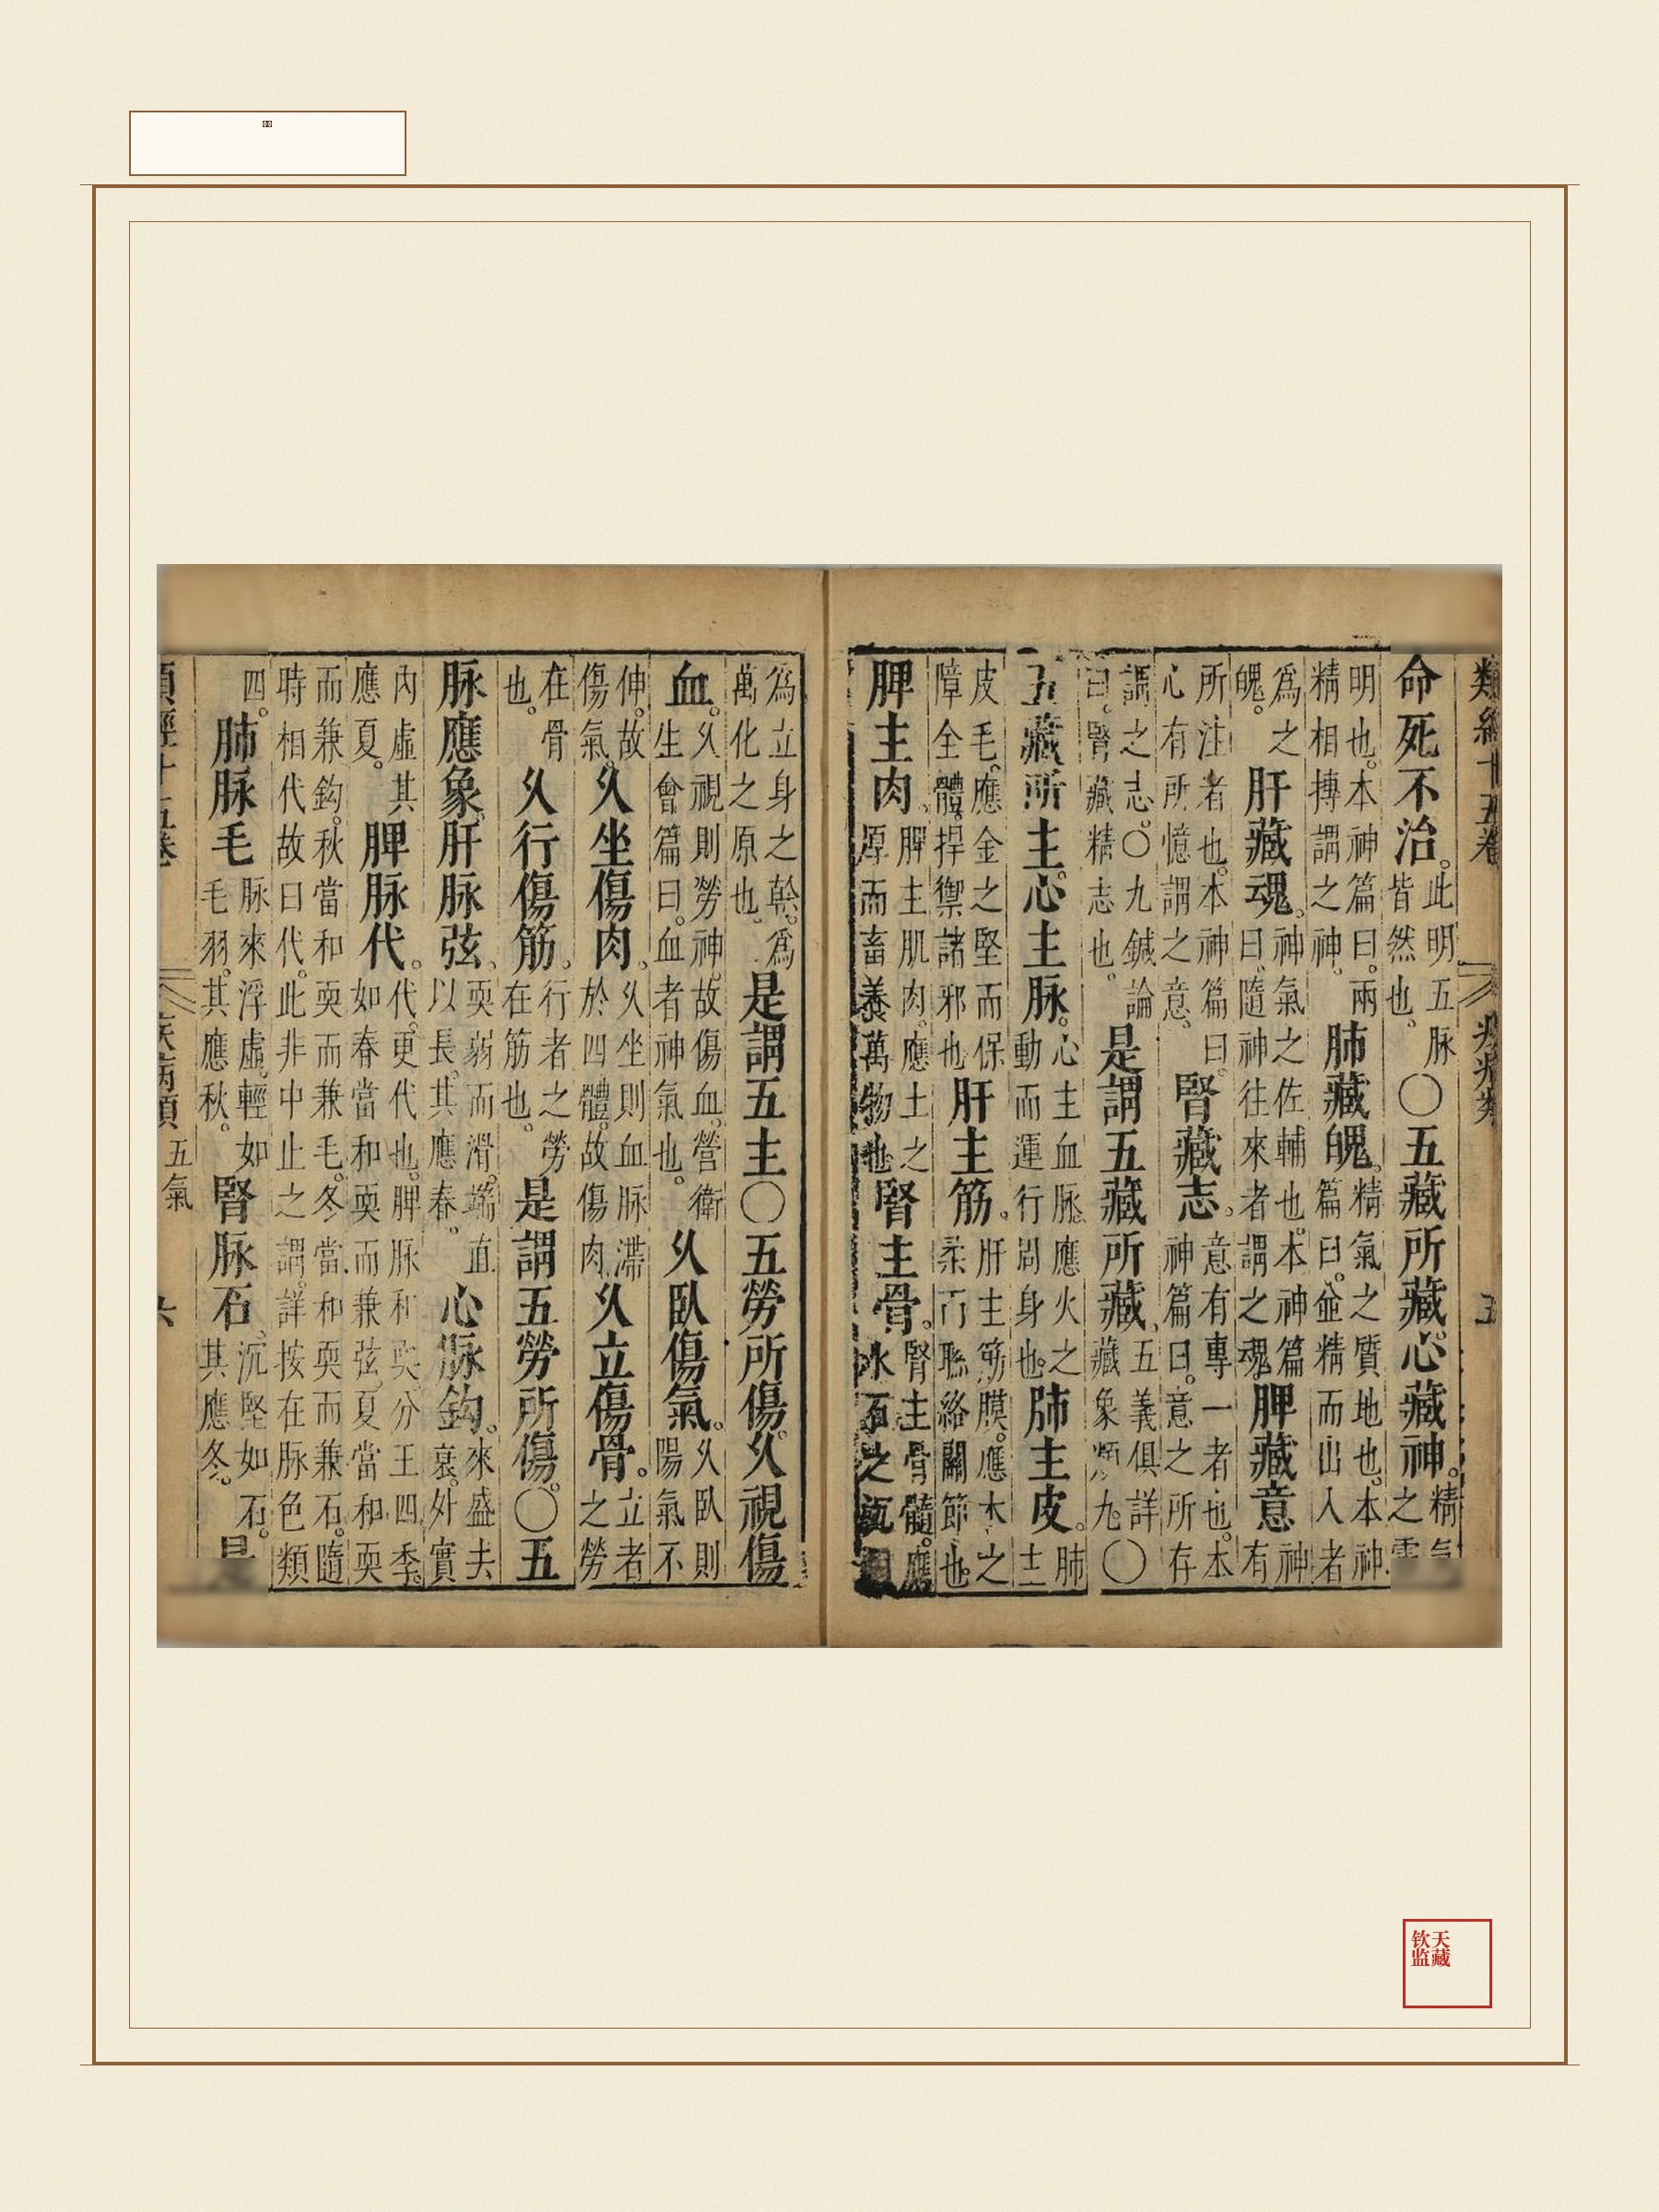 類經十五卷 疾病類 五
命死不治。此明五脉皆然也。〇五藏所藏心藏神。精氣之
明也。本神篇曰。兩精相搏謂之神。肺藏魄。精氣之質地也。本神篇曰。並精而出入者
爲之魄。肝藏魂。神氣之佐輔也。本神篇曰。隨神往來者謂之魂。脾藏意神有
所注者也。本神篇曰。心有所憶謂之意。腎藏志。意有專一者也。本神篇曰。意之所存
謂之志。〇九鍼論曰。腎藏精志也。是謂五藏所藏。五義俱詳藏象類九。〇
五藏所主。心主脉。心主血脉。應火之動而運行周身也。肺主皮。肺主
皮毛。應金之堅而保障全體。捍禦諸邪也。肝主筋。肝主筋膜。應木之柔而聯絡關節也。
脾主肉。脾主肌肉。應土之厚而畜養萬物也。腎主骨。腎主骨髓。應水石之
爲立身之幹。爲萬化之原也。是謂五主〇五勞所傷。久視傷
血。久視則勞神。故傷血。營衛生會篇曰。血者神氣也。久臥傷氣。久臥則陽氣不
伸。故傷氣。久坐傷肉。久坐則血脉滯於四體。故傷肉。久立傷骨。立者之勞
在骨也。久行傷筋。行者之勞在筋也。是謂五勞所傷。〇五
脉應象。肝脉弦。耎弱而滑。端直以長。其應春。心脉鈎。來盛去衰。外實
內虛。其應夏。脾脉代。代。更代也。脾脉和耎。分王四季。如春當和耎而兼弦。夏當和耎
而兼鈎。秋當和耎而兼毛。冬當和耎而兼石。隨時相代。故曰代。此非中止之謂。詳按在脉色類
四。肺脉毛脉來浮虛。輕如毛羽。其應秋。腎脉石。沉堅如石。其應冬。是
類經十五卷 疾病類 五氣 六
钦天监藏